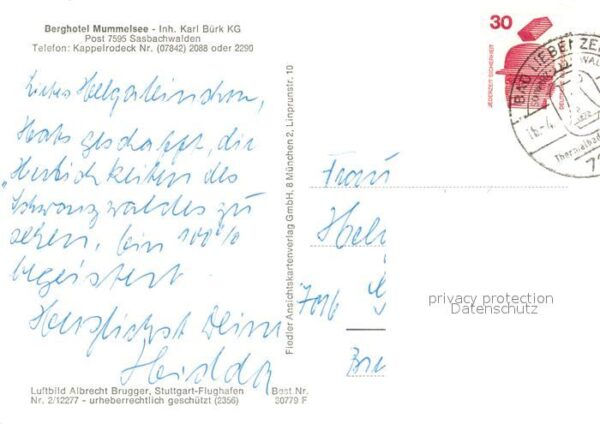 Berghotel Mummelsee - Inh. Karl Bürk KG
Post 7595 Sasbachwalden
Telefon: Kappelrodeck Nr. (07842) 2088 oder 2290
Liebes Helgaleinchen,
Hab's geschafft, die
"Herrlichkeiten des
Schwarzwaldes zu
sehen, bin 100%
begeistert.
Herzlichst Deine
Hedda
Luftbild Albrecht Brugger, Stuttgart-Flughafen
Nr. 2/12277 - urheberrechtlich geschützt (2356)
Best Nr.
30779 F
Fiedler Ansichtskartenverlag GmbH, 8 München 2, Linprunstr. 10
30
JEDERZEIT SICHERHEIT
BAD LIEBENZELL
Thermalbad
Frau
Helg
7016 G
privacy protection
Datenschutz